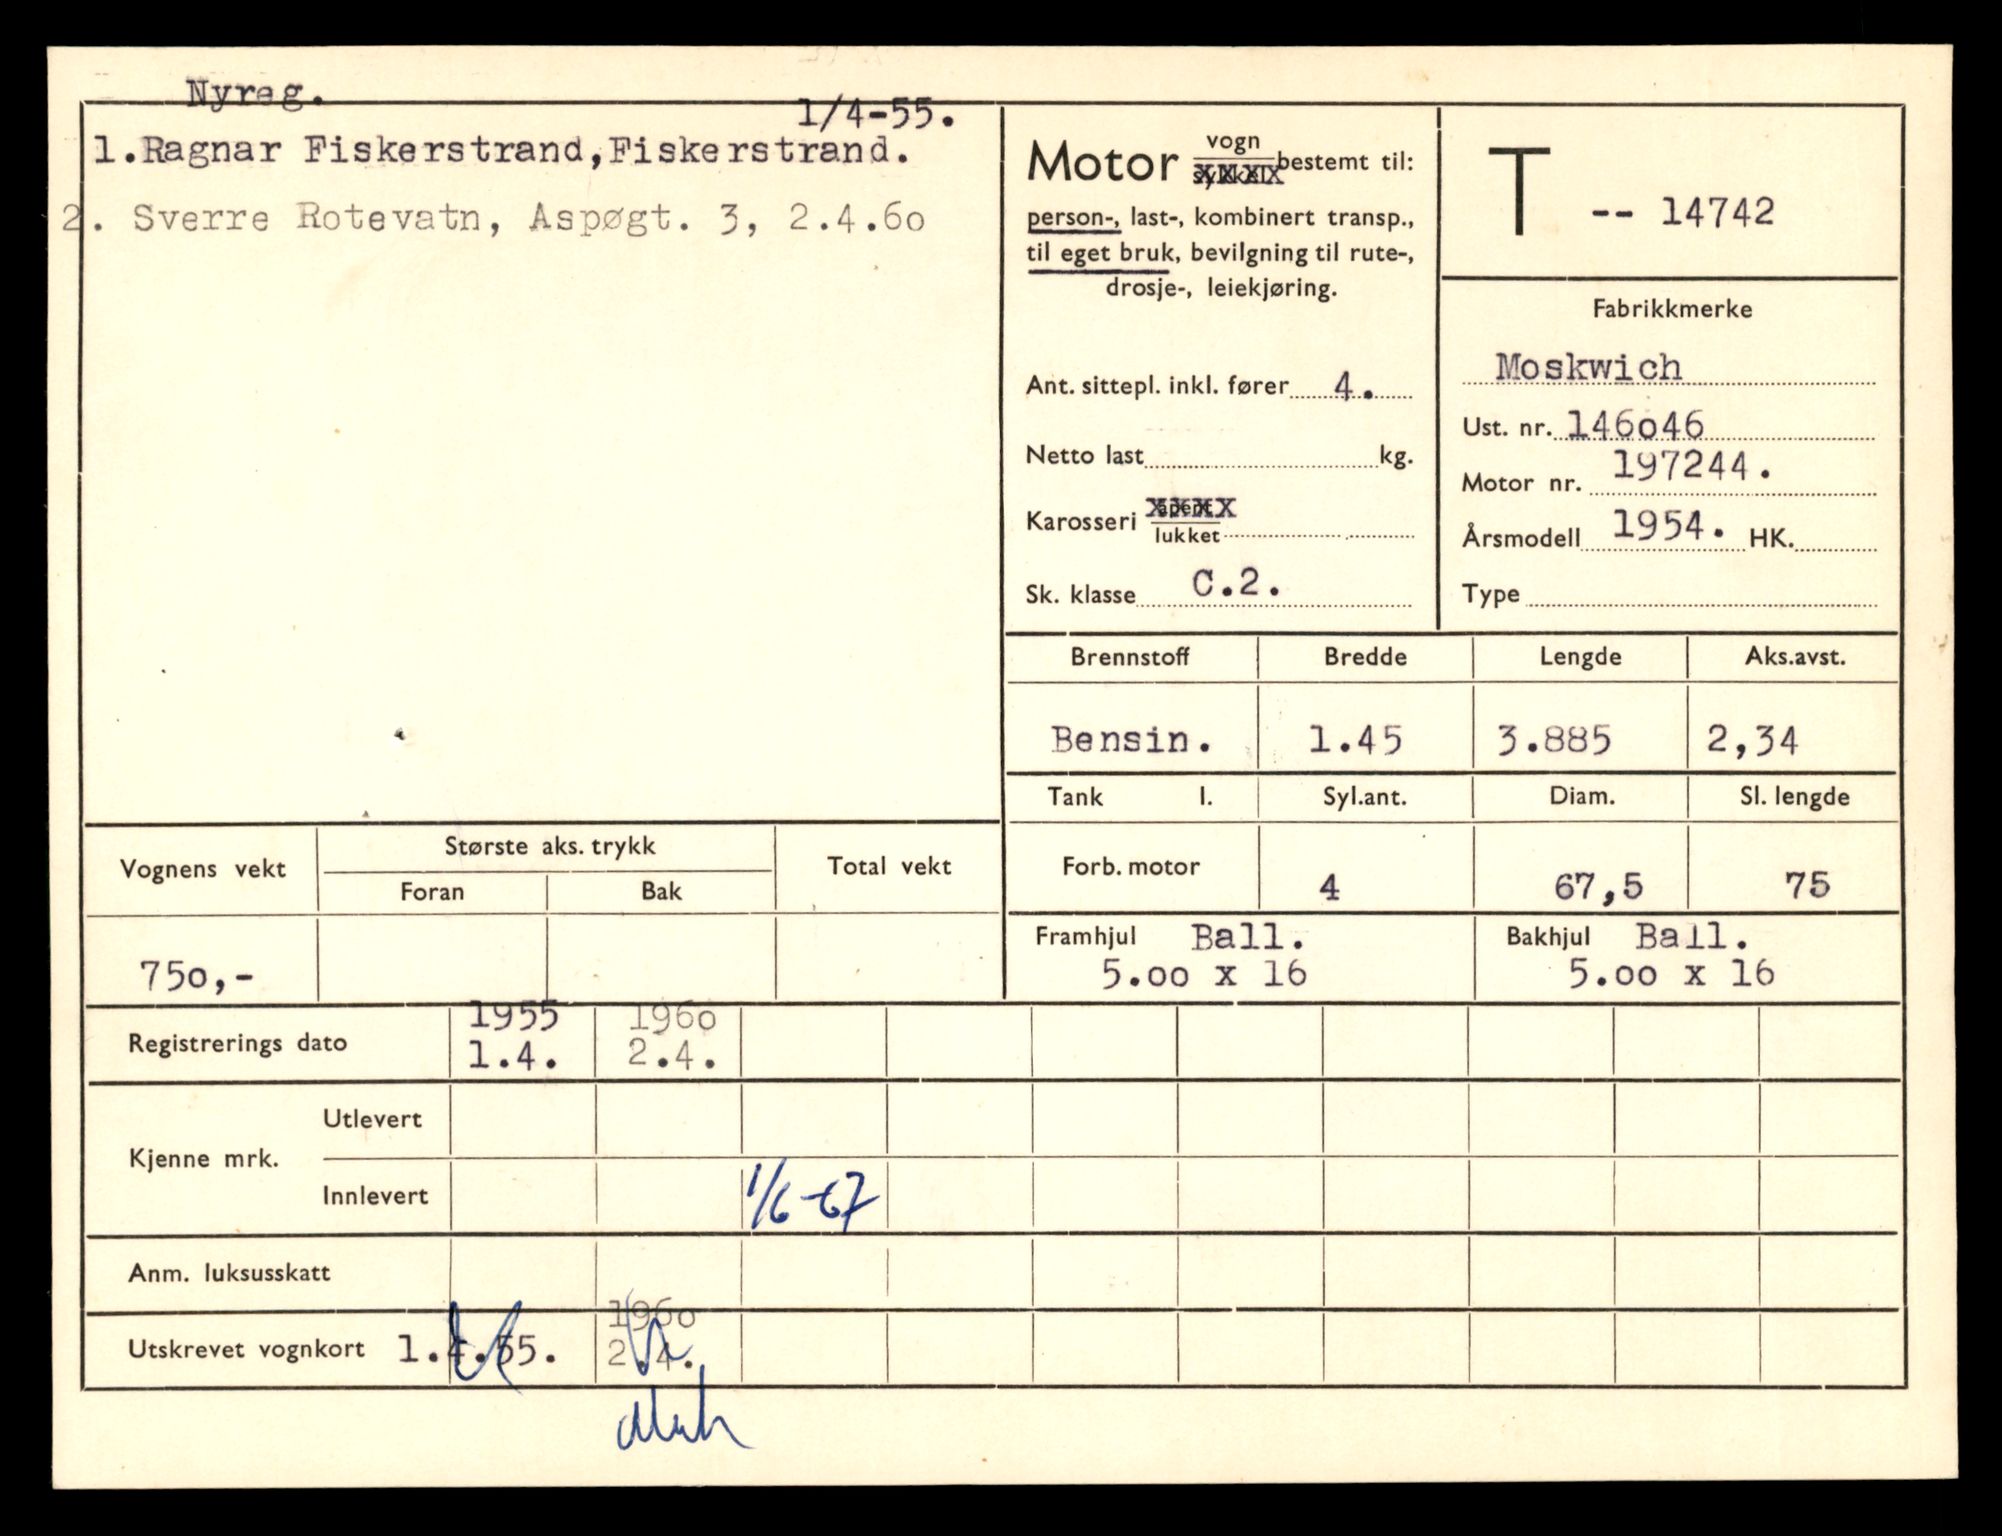 Nyreg.
1/4-55.
1.Ragnar Fiskerstrand,Fiskerstrand.
2. Sverre Rotevatn, Aspøgt. 3, 2.4.6o
Motor vogn bestemt til:
person-, last-, kombinert transp.,
til eget bruk, bevilgning til rute-,
drosje-, leiekjøring.
Ant. sittepl. inkl. fører 4.
Netto last kg.
Karosseri åpent
lukket
Sk. klasse C.2.
T -- 14742
Fabrikkmerke
Moskwich
Ust. nr. 146o46
Motor nr. 197244.
Årsmodell 1954. HK.
Type
Brennstoff Bredde Lengde Aks.avst.
Bensin. 1.45 3.885 2,34
Tank l. Syl.ant. Diam. Sl. lengde
Forb. motor 4 67,5 75
Framhjul Ball. Bakhjul Ball.
5.oo x 16 5.oo x 16
Vognens vekt Største aks. trykk Total vekt
Foran Bak
75o,-
1955 196o
Registrerings dato 1.4. 2.4.
Kjenne mrk. Utlevert
Innlevert 1/6-67
Anm. luksusskatt
196o
Utskrevet vognkort 1.4.55. 2.4.